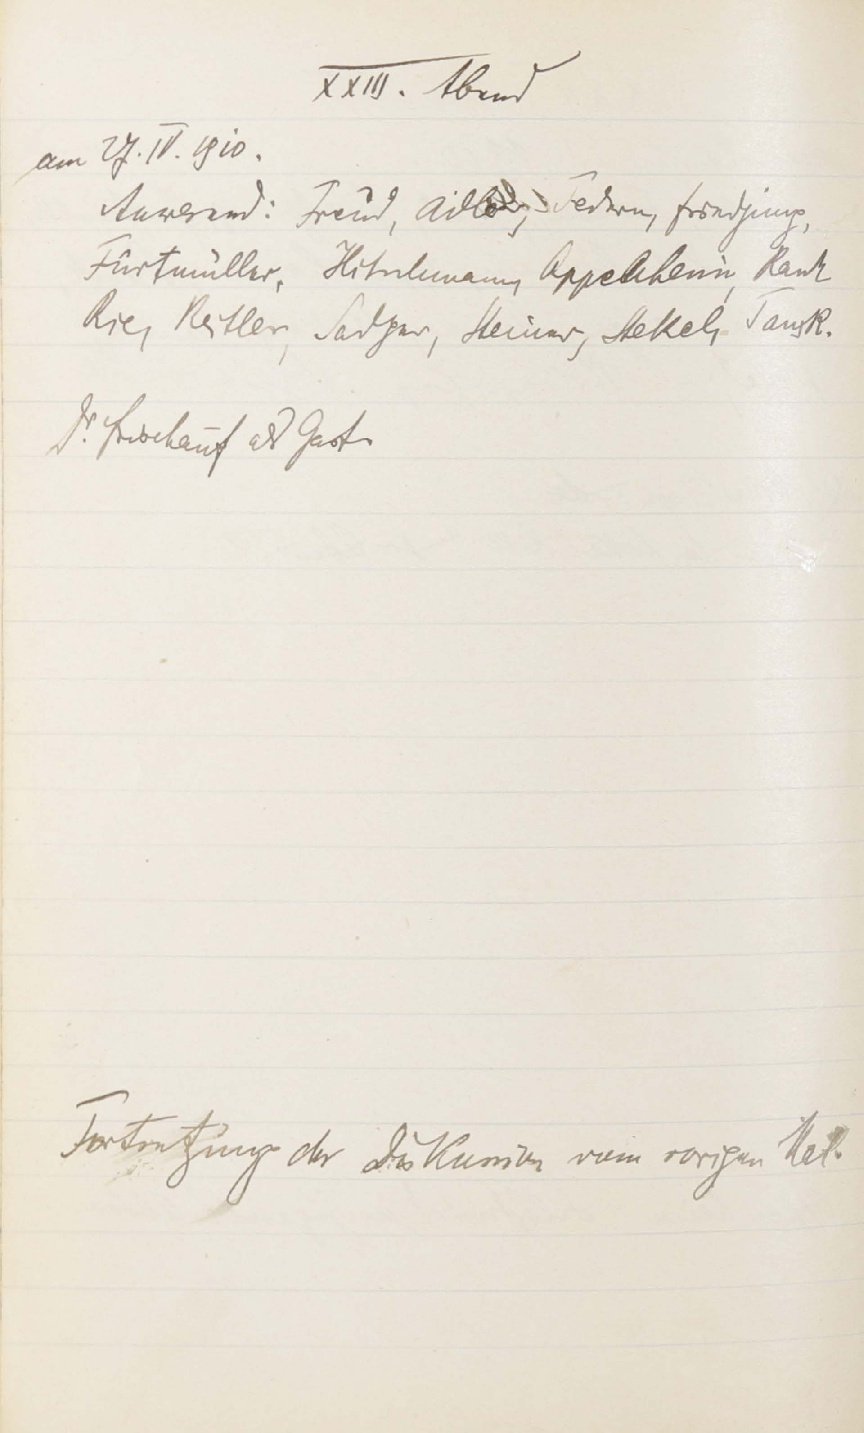 XXIII. Abend
am 27. IV. 1910.
Anwesend: Freud, Adler, Federn, Friedjung,
Furtmüller, Hitschmann, Oppenheim, Rank
Rie, Reitler, Sadger, Steiner, Stekel, Tausk.
Dr. Frischauf als Gast.
Fortsetzung der Diskussion vom vorigen Mal.